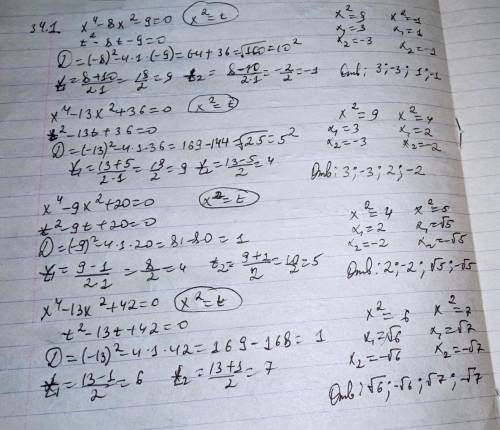 34.1 x⁴-8x²-9=0 x²=t
t²-8t-9=0
D=(-8)²-4·1·(-9)=64+36=√100=10²
t₁=8+10/2·1=18/2=9 t₂=8-10/2·1=-2/2=-1
x²=9 x²=-1
x₁=3 x₁=1
x₂=-3 x₂=-1
Отв: 3;-3; 1;-1
x⁴-13x²+36=0 x²=t
t²-13t+36=0
D=(-13)²-4·1·36=169-144=√25=5²
t₁=13+5/2·1=18/2=9 t₂=13-5/2=4
x²=9 x²=4
x₁=3 x₁=2
x₂=-3 x₂=-2
Отв: 3;-3; 2;-2
x⁴-9x²+20=0 x²=t
t²-9t+20=0
D=(-9)²-4·1·20=81-80=1
t₁=9-1/2·1=8/2=4 t₂=9+1/2=10/2=5
x²=4 x²=5
x₁=2 x₁=√5
x₂=-2 x₂=-√5
Отв: 2;-2; √5;-√5
x⁴-13x²+42=0 x²=t
t²-13t+42=0
D=(-13)²-4·1·42=169-168=1
t₁=13-1/2=6 t₂=13+1/2=7
x²=6 x²=7
x₁=√6 x₁=√7
x₂=-√6 x₂=-√7
Отв: √6;-√6; √7;-√7